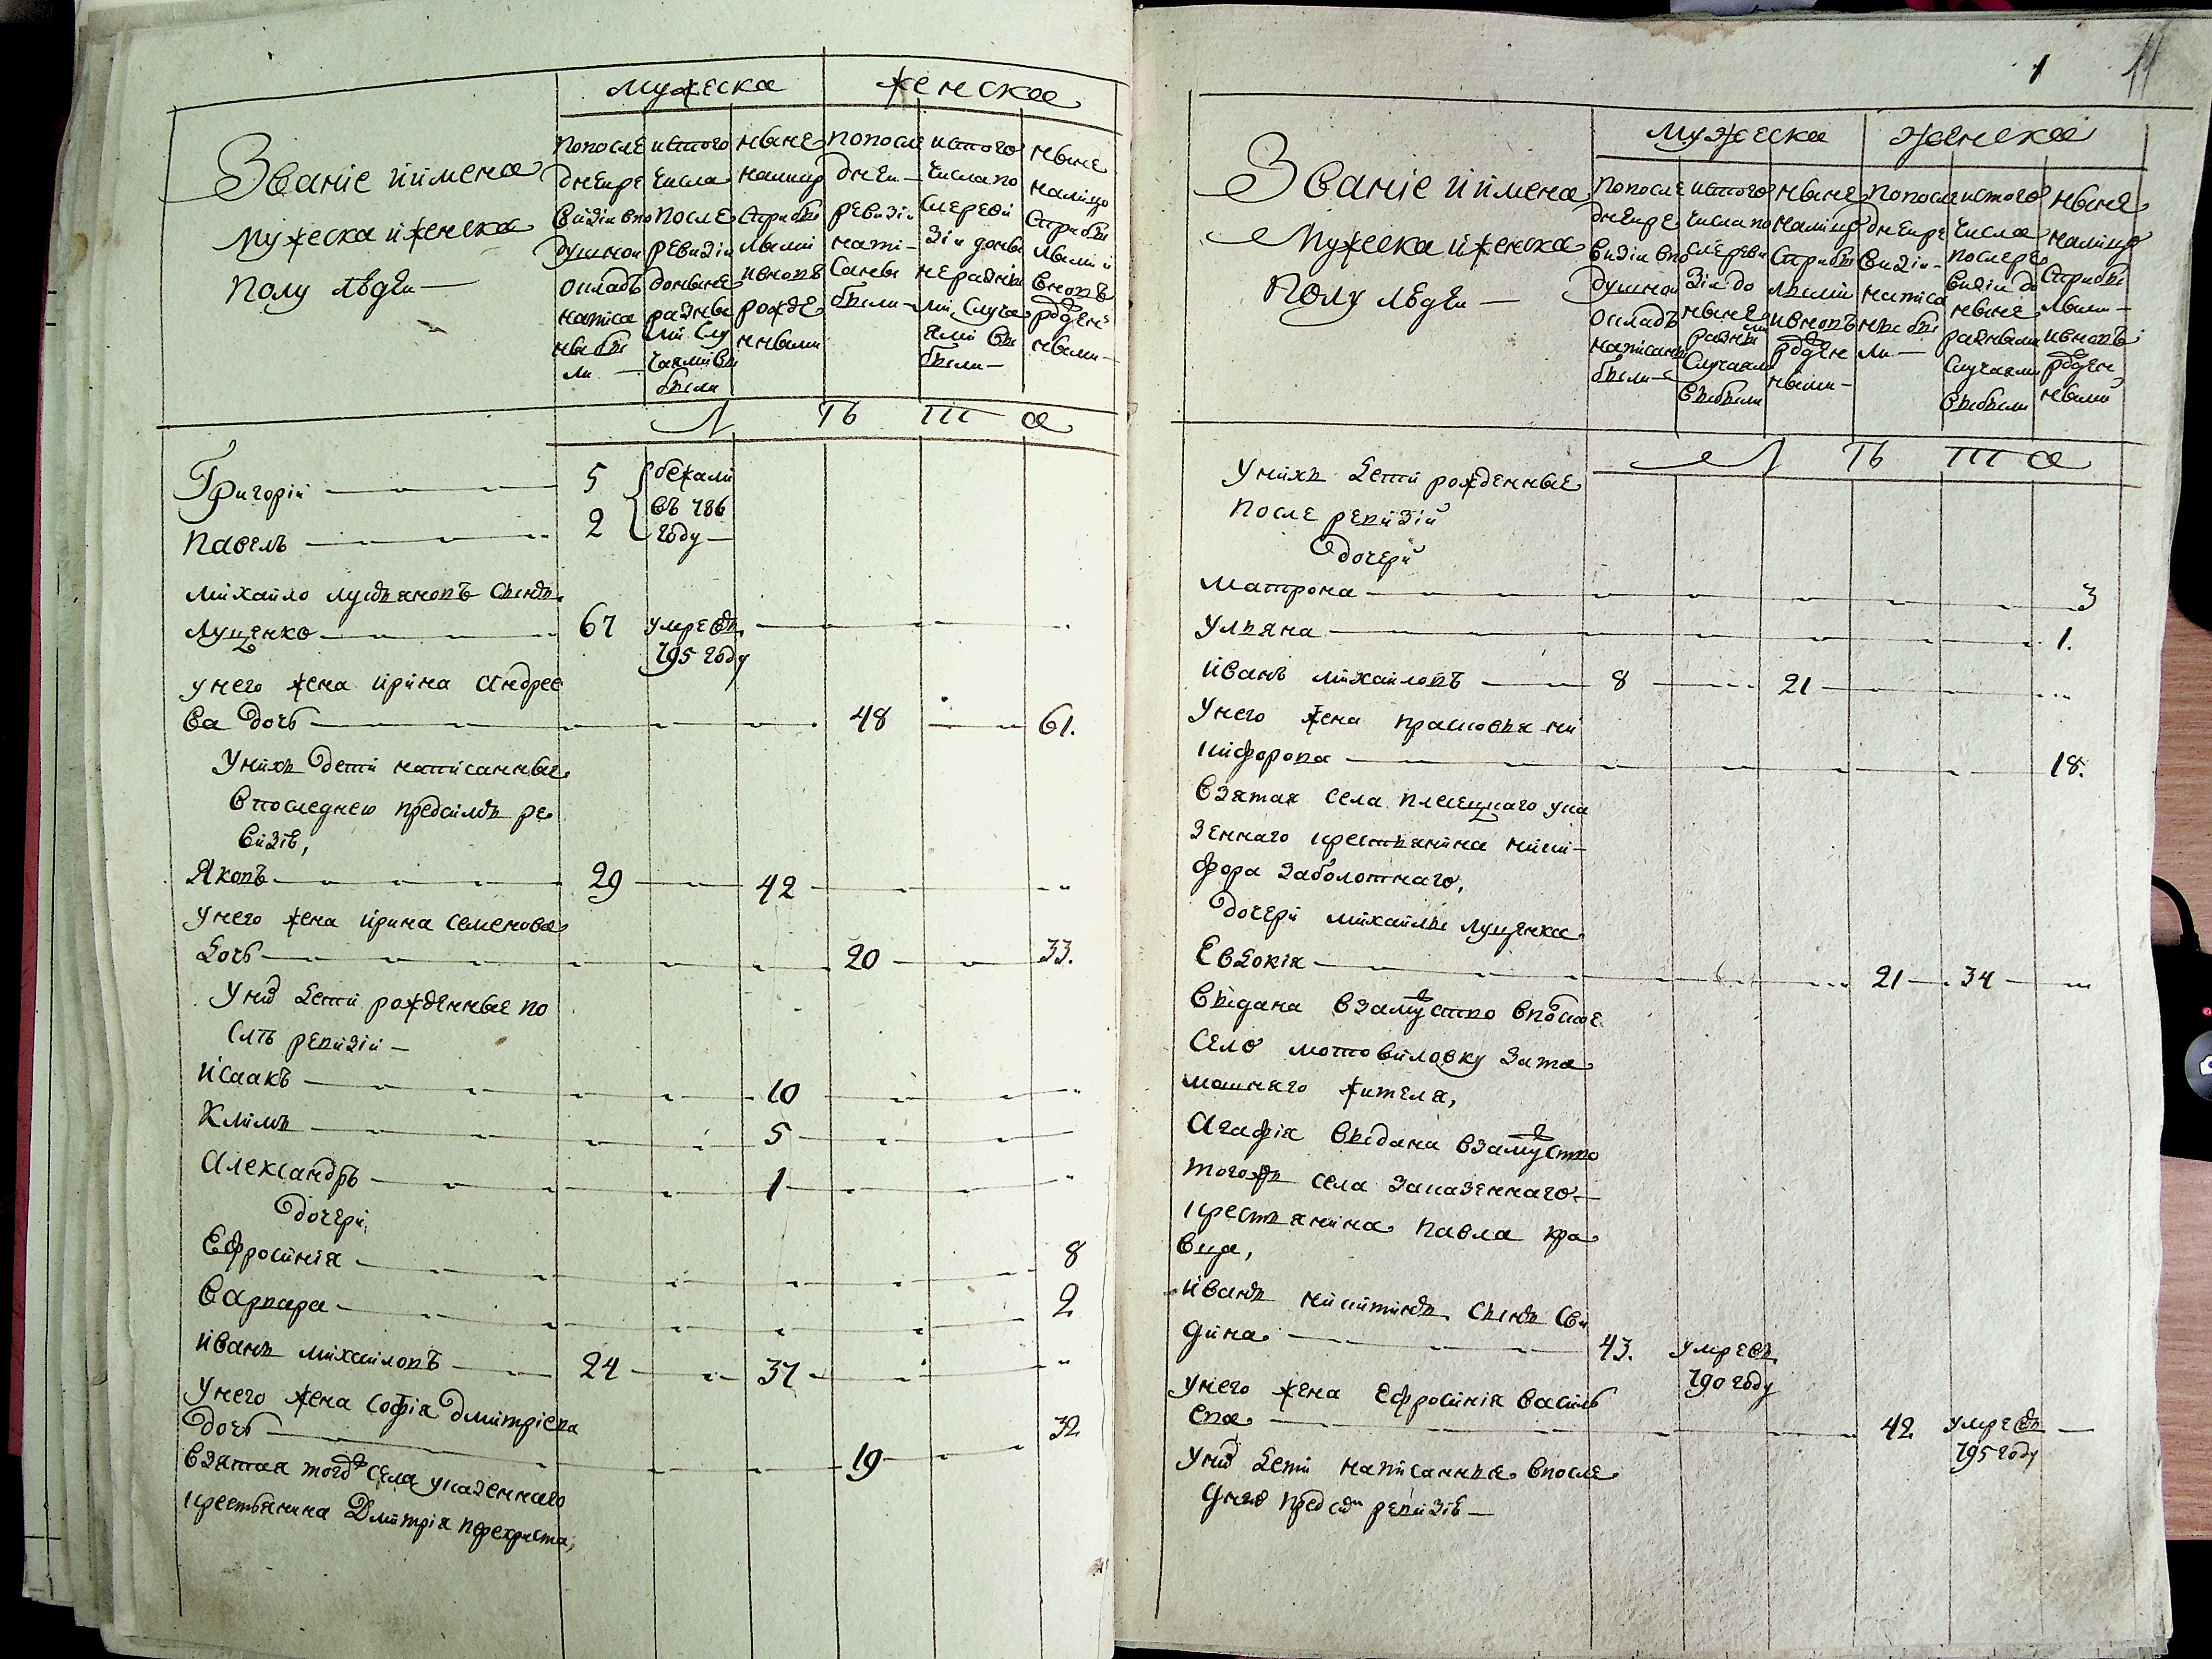 Мужеска Женска
Званіе и имена
мужеска и женска
полу людей —
попосле
дней ре
визіи впо
душной
окладъ
написа
ны бы
ли —
истого
числа
после
ревизіи
доныне
разны
ми слу
чаями вы
были
ныне
налицо
Спрыбы
лыми
ивновъ
рожде
нными
попосле
дней —
ревизіи
напи-
саны
были —
истого
числа по
сле реви
зіи доны
не разны
ми случа
ями вы
были —
ныне
налицо
Спрыбы
лыми и
вновъ
рожден
ными —
Л Ѣ Т А
Григорій — 5 бежали
въ 786
году —
Павелъ — 2
Михайло Лукьяновъ сынъ
Луценко — 67 умре въ
795 году
унего жена Ирина Андрее
ва дочь — 48 — 61.
Унихъ дети написанные
впоследнею предсимъ ре
визію,
Яковъ — 29 — 42
Унего жена Ирина Семенова
дочь — 20 — 33.
Унихъ дети рожденные по
слѣ ревизіи —
Исаакъ — 10
Климъ — 5
Александръ — 1
дочери,
Ефросинія — 8
Варвара — 2
Иванъ Михайловъ — 24 — 37
Унего жена Софія Дмитріева
дочь — 19 — 32
Взятая тогожъ села указенного
крестьянина Дмитрія Перехриста,
1 11
Мужеска Женска
Званіе и имена
Мужеска и женска
Полу людей —
попосле
дней ре
визіи впо
душной
окладъ
написаны
были —
истого
числа по
сле реви
зіи до
ныне
разными
случаями
выбыли
ныне
налицо
Спрыбы
лыми
ивновъ
рожден
ными —
попосле
дней ре
визіи —
написа
ны бы
ли —
истого
числа
после ре
визіи до
ныне
разными
случаями
выбыли
ныне
налицо
Спрыбы
лыми —
ивновъ
рожден
ными
Л Ѣ Т А
Унихъ дети рожденные
после ревизіи
дочери
Матрона — 3
Ульяна — 1.
Иванъ Михайловъ — 8 — 21
Унего жена Прасковья Ни
кифорова — 18.
Взятая села Плесецкаго ука
зеннаго крестьянина Ники-
фора Заболотнаго,
дочери Михайлы Луценка
Евдокія — 21 — 34
Выдана взамужство вполское
село Мотовиловку зата
мошняго жителя,
Агафія выдана взамужство
тогожъ села заказеннаго —
крестьянина Павла Кра
вца,
Иванъ Никитинъ сынъ Сви
дина — 43. умре въ
790 году
Унего жена Ефросинія Василь
ева — 42 умре въ —
795 году
Унихъ дети написанные впосле
днею предсимъ ревизію —